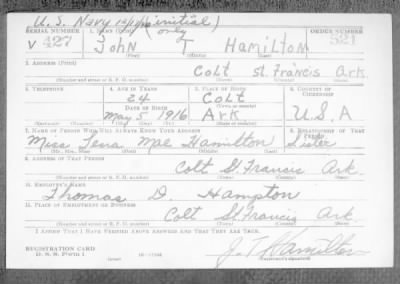 U.S. Navy (initial) only
SERIAL NUMBER 1. NAME (Print) ORDER NUMBER
V 427 John T Hamilton 521
(First) (Middle) (Last)
2. ADDRESS (Print)
Colt St. Francis Ark.
(Number and street or R. F. D. number) (Town) (County) (State)
3. TELEPHONE 4. AGE IN YEARS 5. PLACE OF BIRTH 6. COUNTRY OF CITIZENSHIP
24 Colt
DATE OF BIRTH (Town or county)
May 5, 1916 Ark U.S.A
(Mo.) (Day) (Yr.) (State or country)
7. NAME OF PERSON WHO WILL ALWAYS KNOW YOUR ADDRESS 8. RELATIONSHIP OF THAT PERSON
Miss Tena Mae Hamilton Sister
(Mr., Mrs., Miss) (First) (Middle) (Last)
9. ADDRESS OF THAT PERSON
Colt St. Francis Ark.
(Number and street or R. F. D. number) (Town) (County) (State)
10. EMPLOYER'S NAME
Thomas D. Hampton
11. PLACE OF EMPLOYMENT OR BUSINESS
Colt St Francis Ark
(Number and street or R. F. D. number) (Town) (County) (State)
I AFFIRM THAT I HAVE VERIFIED ABOVE ANSWERS AND THAT THEY ARE TRUE.
REGISTRATION CARD
D. S. S. FORM 1
J. T. Hamilton
(Registrant's signature)